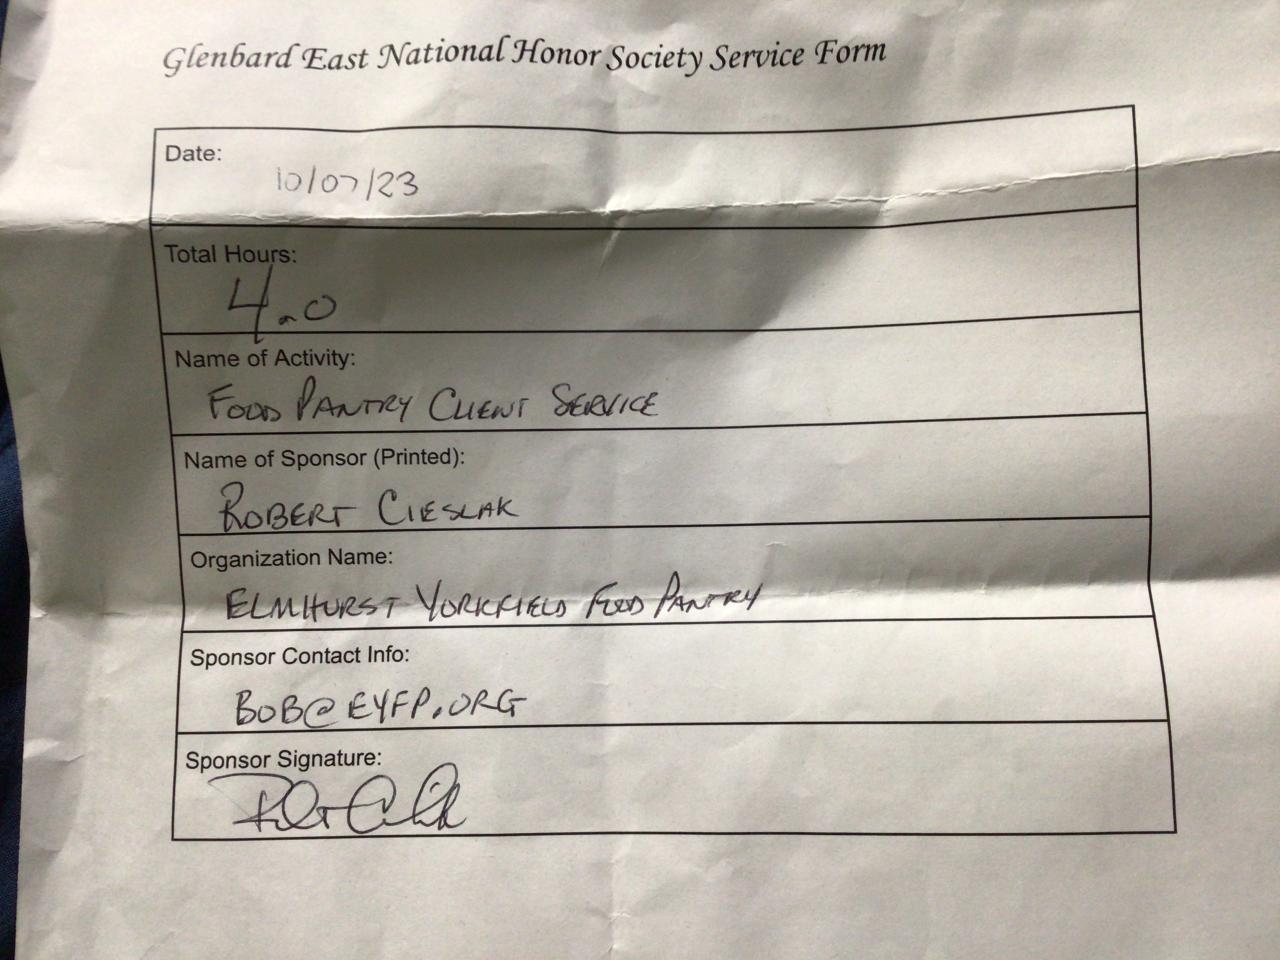 Glenbard East National Honor Society Service Form
Date:
10/07/23
Total Hours:
4.0
Name of Activity:
FOOD PANTRY CLIENT SERVICE
Name of Sponsor (Printed):
ROBERT CIESLAK
Organization Name:
ELMHURST YORKFIELD FOOD PANTRY
Sponsor Contact Info:
BOB@EYFP.ORG
Sponsor Signature: